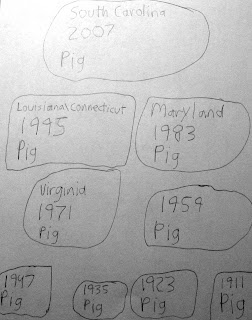 South Carolina
2007
Pig
Louisiana\Connecticut
1995
Pig
Maryland
1983
Pig
Virginia
1971
Pig
1959
Pig
1947
Pig
1935
Pig
1923
Pig
1911
Pig